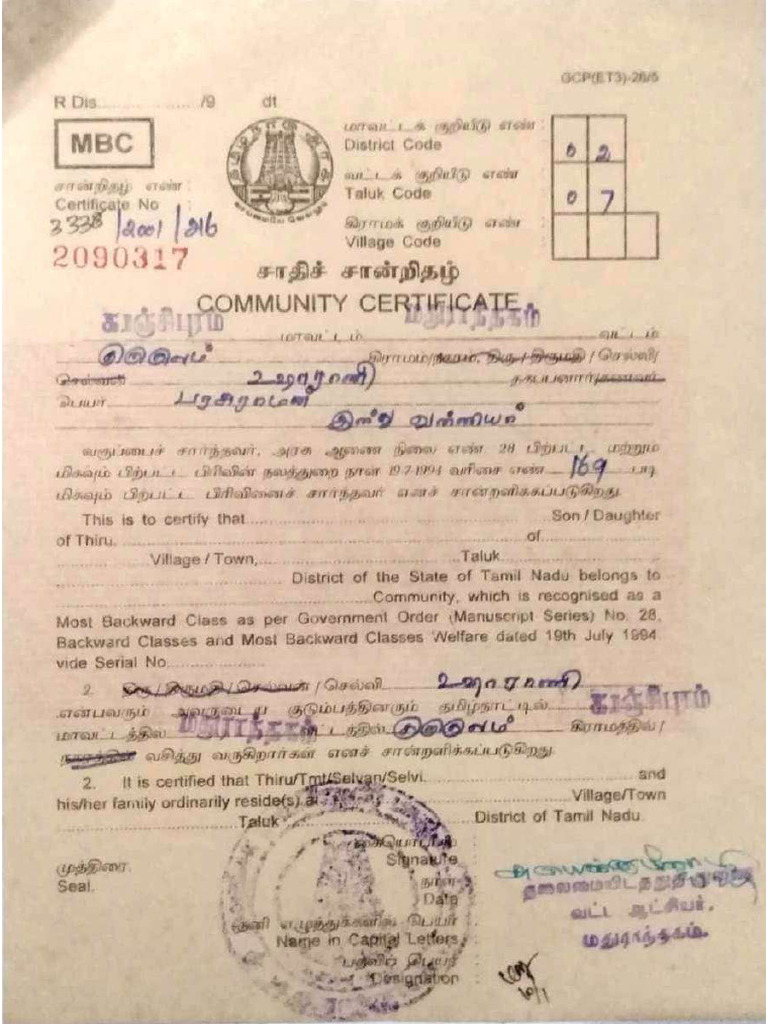 GCP(ET3)-26/5
R Dis. /9 dt
MBC
மாவட்டக் குறியீடு எண் :
District Code
0 2
சான்றிதழ் எண் :
வட்டக் குறியீடு எண் :
Certificate No :
Taluk Code
0 7
3338/2001/
கிராமக் குறியீடு எண் :
Village Code
2090317
சாதிச் சான்றிதழ்
COMMUNITY CERTIFICATE
காஞ்சிபுரம் மாவட்டம் மதுராந்தகம் வட்டம்
கிராமம்/நகரம், திரு / திருமதி / செல்வி/
செல்வன் உஷாராணி தகப்பனார்/கணவர்
பெயர் பரசுராமன்
இந்து வன்னியர்
வகுப்பைச் சார்ந்தவர், அரசு ஆணை நிலை எண் 28 பிற்பட்ட மற்றும்
மிகவும் பிற்பட்ட பிரிவின் நலத்துறை நாள் 19-7-1994 வரிசை எண் 169 படி
மிகவும் பிற்பட்ட பிரிவினைச் சார்ந்தவர் எனச் சான்றளிக்கப்படுகிறது.
This is to certify that Son / Daughter
of Thiru. of
Village / Town, Taluk
District of the State of Tamil Nadu belongs to
Community, which is recognised as a
Most Backward Class as per Government Order (Manuscript Series) No. 28,
Backward Classes and Most Backward Classes Welfare dated 19th July 1994
vide Serial No.
2. திரு / திருமதி / செல்வன் / செல்வி உஷாராணி
என்பவரும் அவருடைய குடும்பத்தினரும் தமிழ்நாட்டில் காஞ்சிபுரம்
மாவட்டத்தில் மதுராந்தகம் வட்டத்தில் கிராமத்தில்/
நகரத்தில் வசித்து வருகிறார்கள் எனச் சான்றளிக்கப்படுகிறது.
2. It is certified that Thiru/Tmt/Selvan/Selvi. and
his/her family ordinarily reside(s) at Village/Town
Taluk District of Tamil Nadu.
கையொப்பம் :
முத்திரை. Signature
Seal. நாள்
Date
தலைமையிடத்து துணை
வட்ட ஆட்சியர்,
தனி எழுத்துக்களில் பெயர்
மதுராந்தகம்.
Name in Capital Letters
பதவிப் பெயர்
Designation